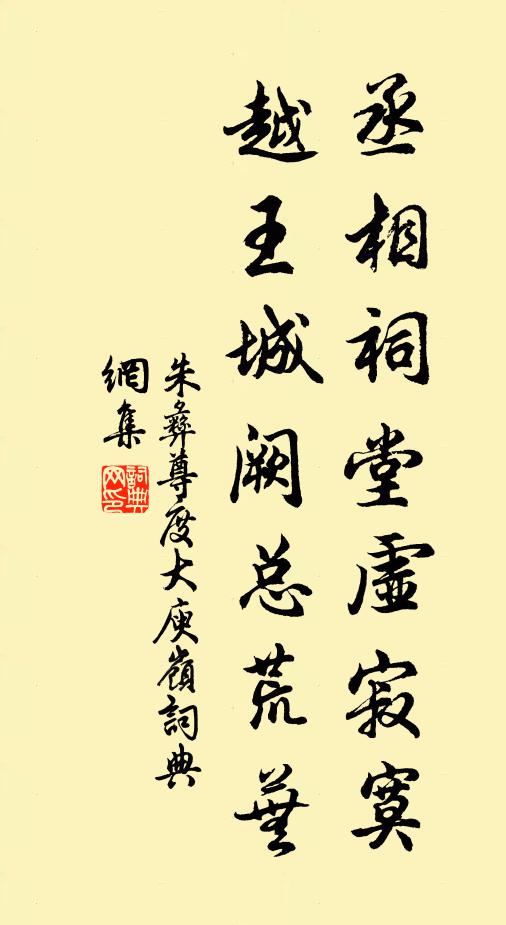 丞相祠堂虛寂寞
越王城阙总荒蕪
朱彝尊度大庾嶺詞典
網集
詞典
网印